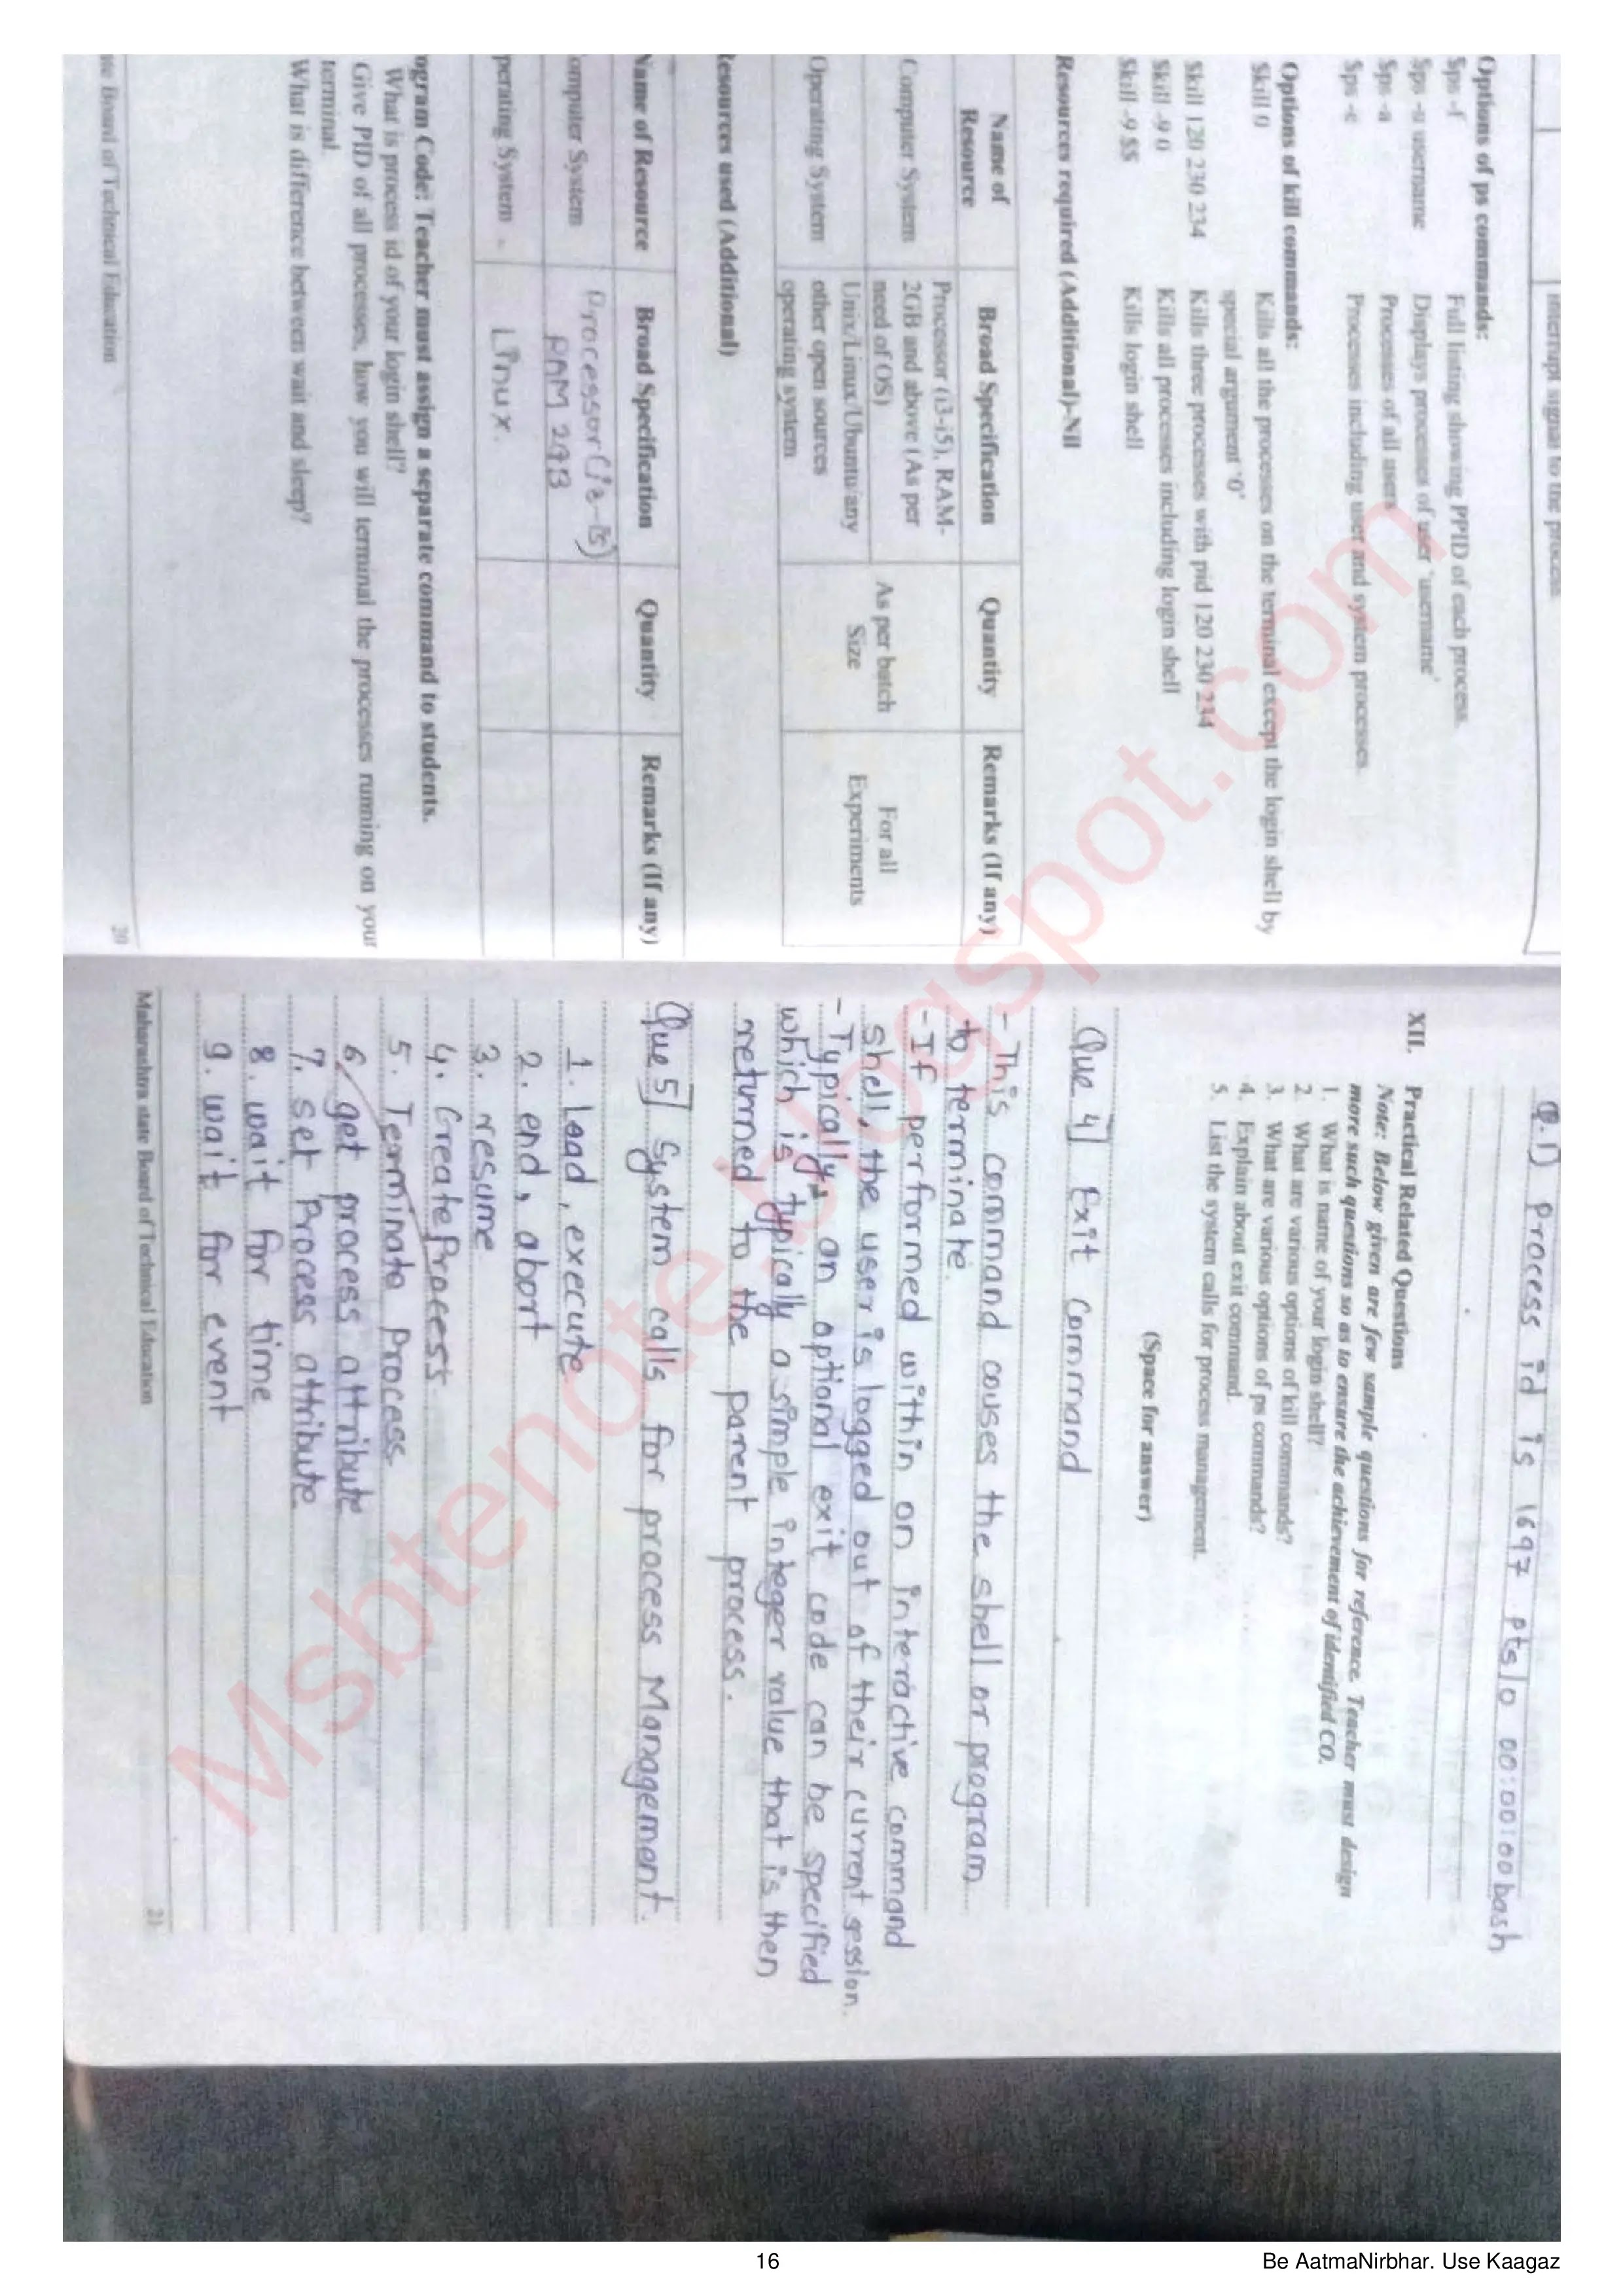 interrupt signal to the process
Options of ps commands:
$ps -f Full listing showing PPID of each process.
$ps -u username Displays processes of user 'username'
$ps -a Processes of all users
$ps -e Processes including user and system processes.
Options of kill commands:
$kill 0 Kills all the processes on the terminal except the login shell by
special argument '0'
$kill 120 230 234 Kills three processes with pid 120 230 234
$kill -9 0 Kills all processes including login shell
$kill -9 $$ Kills login shell
Resources required (Additional)-Nil
Name of Resource Broad Specification Quantity Remarks (If any)
Computer System Processor (i3-i5), RAM-
2GB and above (As per
need of OS)
As per batch
Size
For all
Experiments
Operating System Unix/Linux/Ubuntu/any
other open sources
operating system
Resources used (Additional)
Name of Resource Broad Specification Quantity Remarks (If any)
omputer System
RAM 2GB
perating System Linux.
ogram Code: Teacher must assign a separate command to students.
What is process id of your login shell?
Give PID of all processes, how you will terminal the processes running on your
terminal.
What is difference between wait and sleep?
te Board of Technical Education 20
Q.1) Process id is 1697 pts/0 00:00:00 bash
XII. Practical Related Questions
Note: Below given are few sample questions for reference. Teacher must design
more such questions so as to ensure the achievement of identified CO.
1. What is name of your login shell?
2. What are various options of kill commands?
3. What are various options of ps commands?
4. Explain about exit command.
5. List the system calls for process management.
(Space for answer)
Que 4] Exit Command
- This command causes the shell or program
to terminate.
- If performed within an interactive command
shell, the user is logged out of their current session.
- Typically, an optional exit code can be specified
which is typically a simple integer value that is then
returned to the parent process.
Que 5] System calls for process Management.
1. Load, execute
2. end, abort
3. resume
4. Create Process
5. Terminate Process.
6. get process attribute
7. set Process attribute
8. wait for time
9. wait for event
Maharashtra state Board of Technical Education 21
Msbtenote.blogspot.com
16 Be AatmaNirbhar. Use Kaagaz